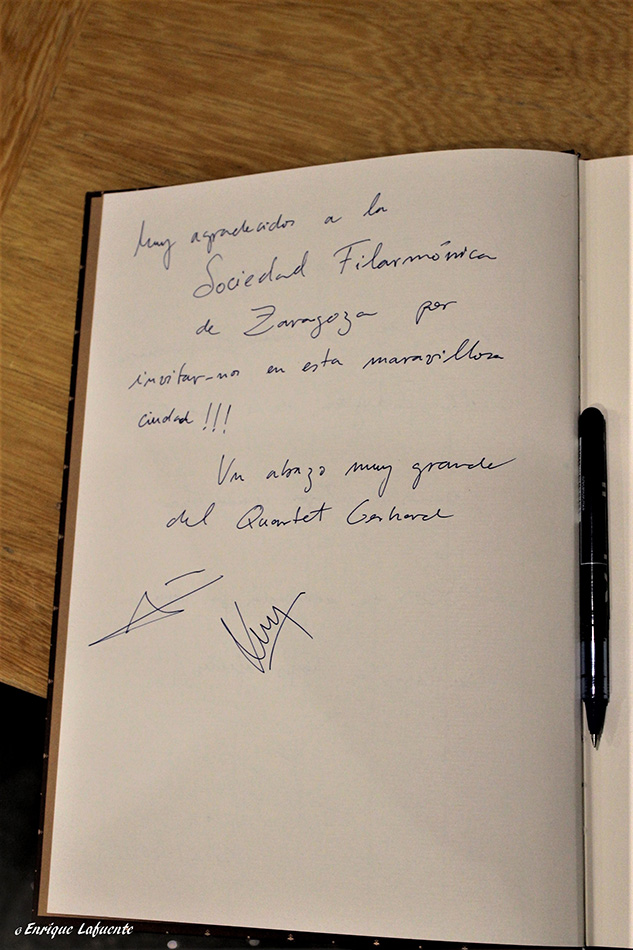 Muy agradecidos a la
Sociedad Filarmónica
de Zaragoza por
invitar-nos en esta maravillosa
ciudad!!!
Un abazo muy grande
del Quartet Gerhard
© Enrique Lafuente